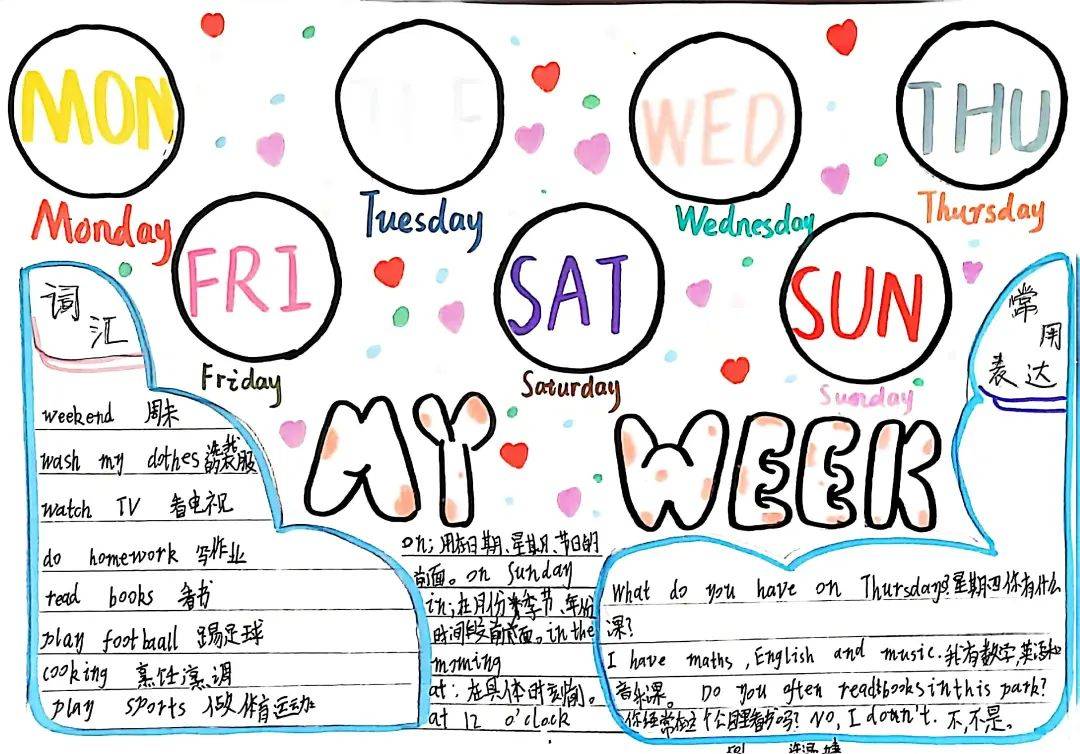 MON
TUE
WED
THU
Monday
Tuesday
Wednesday
Thursday
FRI
SAT
SUN
Friday
Saturday
Sunday
MY WEEK
词汇
weekend 周末
wash my clothes 洗我的衣服
watch TV 看电视
do homework 写作业
read books 看书
play footbaall 踢足球
cooking 烹饪烹调
play sports 做体育运动
on: 用在日期、星期、节日的
前面。on Sunday
in: 在月份 季节、年份
时间段前面。in the
morning
at: 在具体时刻前。
at 12 o'clock
常用
表达
What do you have on Thursdays? 星期四你有什么
课?
I have maths, English and music. 我有数学,英语和
音乐课。 Do you often read books in this park?
你经常在这个公园里看书吗? NO, I doun't. 不,不是。